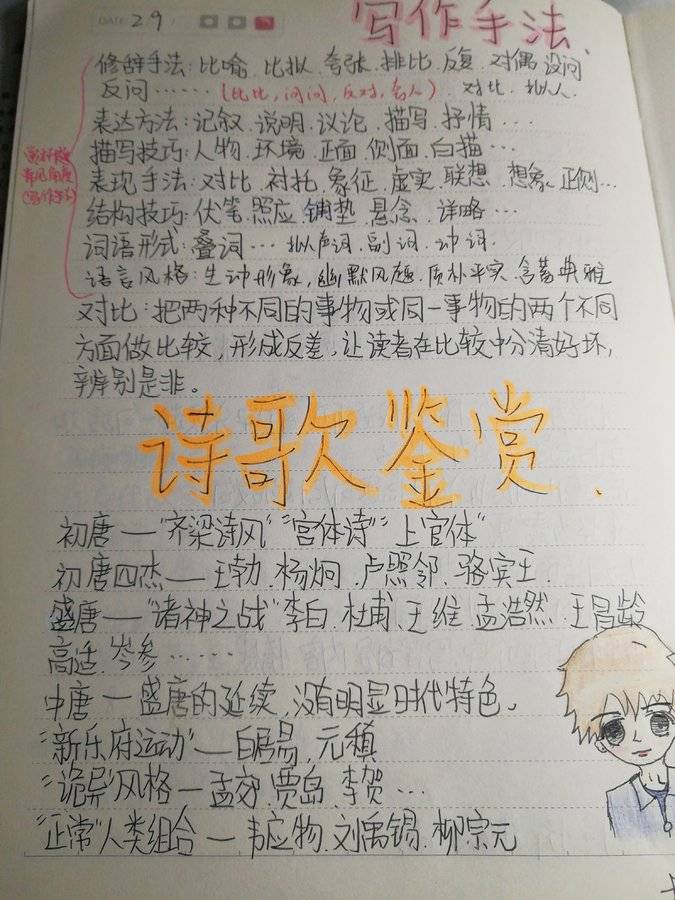 DATE 29
写作手法
修辞手法:比喻、比拟、夸张、排比、反复、对偶、设问
反问……(比比,问问,反对,夸人)、对比、拟人
表达方法:记叙、说明、议论、描写、抒情…
描写技巧:人物、环境、正面、侧面、白描…
表现手法:对比、衬托、象征、虚实、联想、想象、正侧…
结构技巧:伏笔、照应、铺垫、悬念、详略…
词语形式:叠词…拟声词、副词、动词、
语言风格:生动形象,幽默风趣、质朴平实、含蓄典雅
对比:把两种不同的事物或同一事物的两个不同
方面做比较,形成反差,让读者在比较中分清好坏,
辨别是非。
诗歌鉴赏.
初唐—"齐梁诗风""宫体诗"上官体"
初唐四杰—王勃、杨炯、卢照邻、骆宾王.
盛唐—"诸神之战"李白、杜甫、王维、孟浩然、王昌龄
高适、岑参……
中唐—盛唐的延续,没有明显时代特色。
"新乐府运动"—白居易,元稹
"诡异"风格—孟郊、贾岛、李贺…
"正常"人类组合—韦应物、刘禹锡、柳宗元